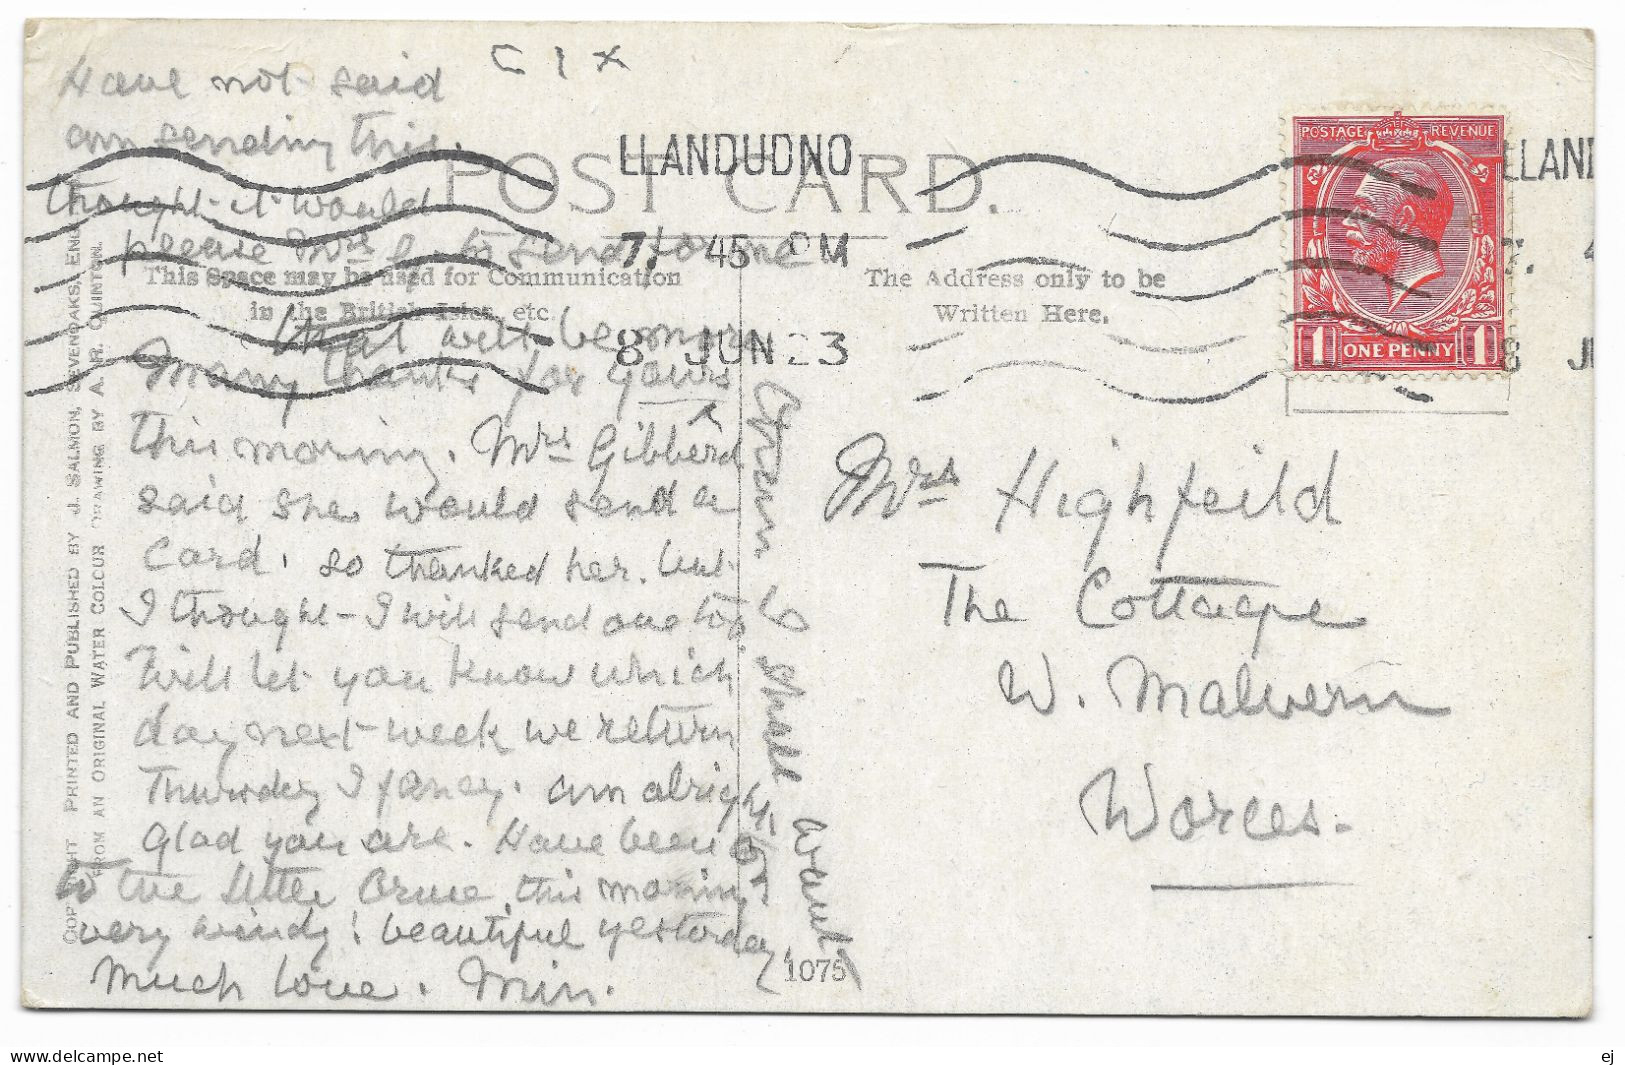 C 1 x
Have not said
am sending this.
thought it would
please Mrs G. to send for me
POST CARD.
LLANDUDNO
7. 45 PM
8 JUN 23
LLAND
POSTAGE REVENUE
1 ONE PENNY 1
This Space may be used for Communication
in the British Isles, etc.
The Address only to be
Written Here.
that will be more
Many thanks for yours
this morning. Mrs Gibberd
said she would send a
Card. so thanked her. but
I thought I will send one too.
Will let you know which
day next week we return
Thursday I fancy. am alright
glad you are. Have been
to the little Orme this morning
very windy! beautiful yesterday,
Much love. Min.
Mrs Highfeild
The Cottage
W. Malvern
Worces.
COPYRIGHT PRINTED AND PUBLISHED BY J. SALMON, SEVENOAKS, ENG
FROM AN ORIGINAL WATER COLOUR DRAWING BY A. R. QUINTON.
1075
ej